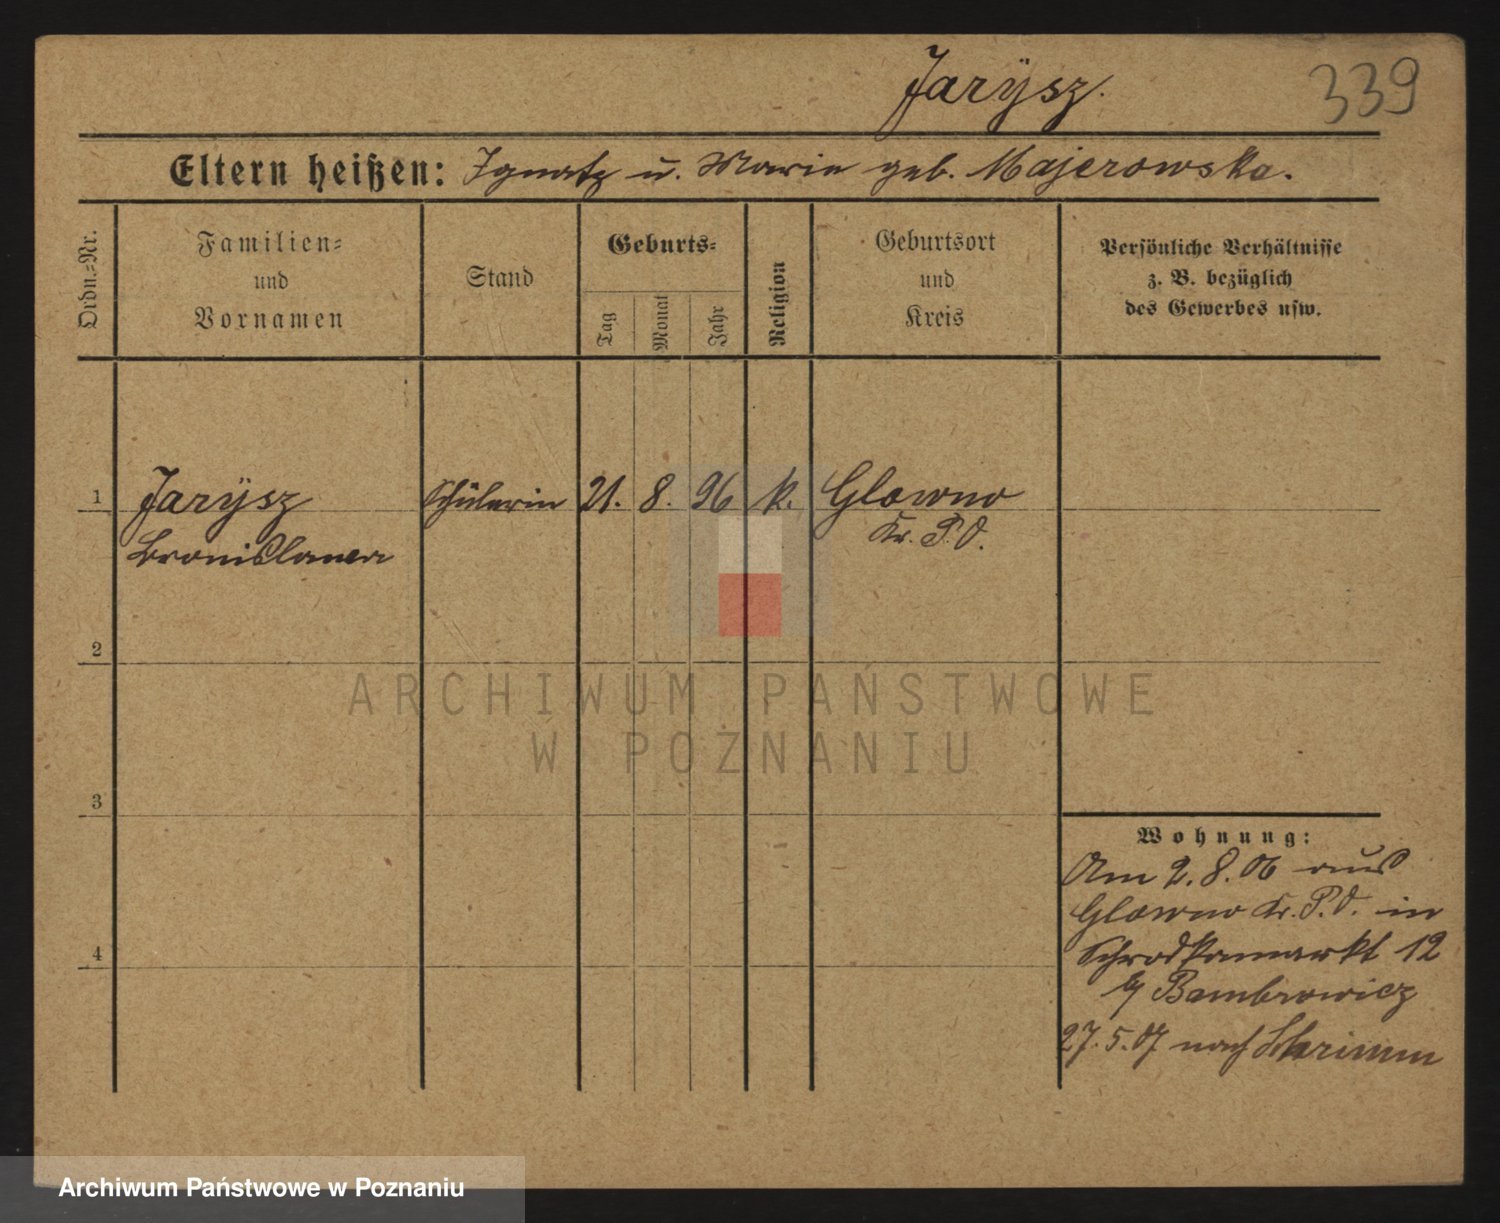 Jarÿsz.
339
Eltern heißen: Ignatz u. Marie geb. Majerowska.
Ordn.-Nr.
Familien-
und
Vornamen
Stand
Geburts-
Tag
Monat
Jahr
Religion
Geburtsort
und
Kreis
Persönliche Verhältnisse
z. B. bezüglich
des Gewerbes usw.
1 Jarÿsz Schülerin 21. 8. 96 k. Glowno
Bronislawa Kr. P. O.
2
ARCHIWUM PAŃSTWOWE
W POZNANIU
3
Wohnung:
Am 2. 8. 06 aus
Glowno Kr. P. O. in
Schrodkamarkt 12
b/ Bambrowicz
4
27. 5. 07 nach Schrimm
Archiwum Państwowe w Poznaniu